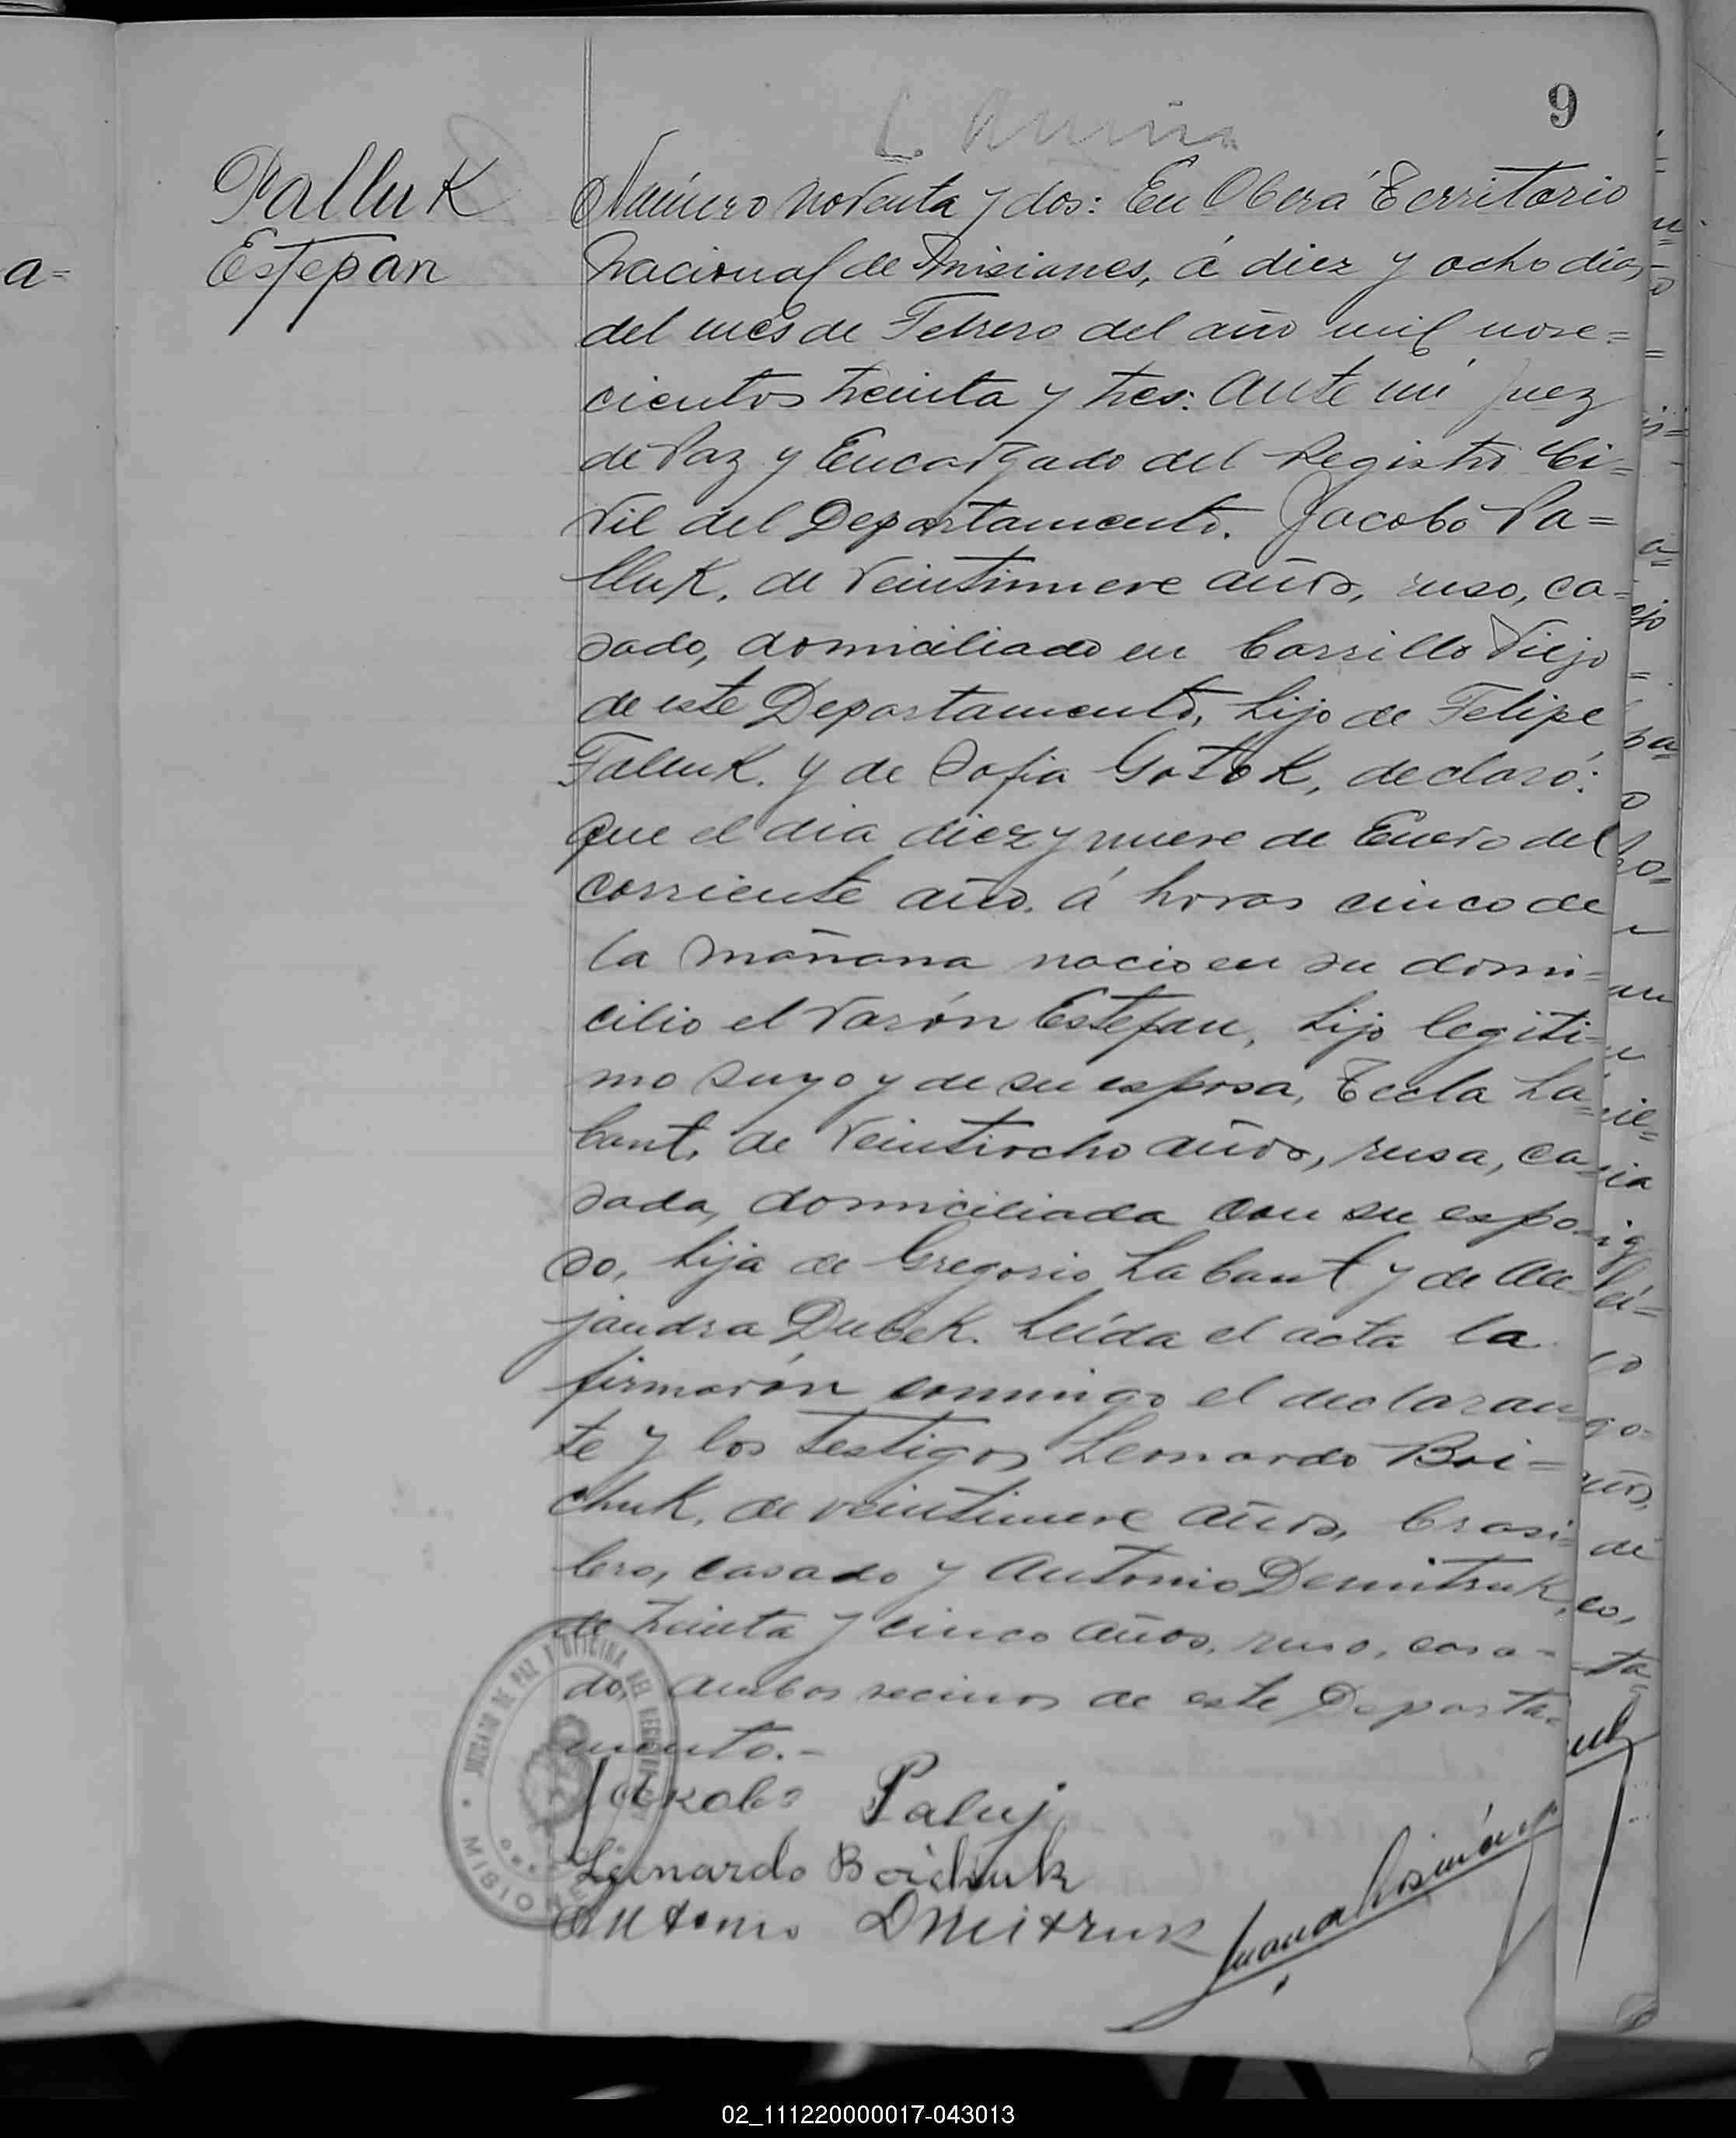 9
Palluk
Estepan
a=
Número noventa y dos: En Oberá Territorio
Nacional de Misiones, á diez y ocho dias
del mes de Febrero del año mil nove=
cientos treinta y tres: Ante mi Juez
de Paz y Encargado del Registro Ci=
vil del Departamento. Jacobo Pa=
lluk, de veintinueve años, ruso, ca=
sado, domiciliado en Carrillo Viejo
de este Departamento, hijo de Felipe
Falluk. y de Sofia Gotok, declaró:
que el dia diez y nueve de Enero del
corriente año. á horas cinco de
la mañana nacio en su domi=
cilio el varón Estefan, hijo legiti=
mo suyo y de su esposa, Tecla La=
bant, de veintiocho años, rusa, ca=
sada, domiciliada con su espo=
so, hija de Gregorio Labant y de Ale
jandra Dubek. Leída el acta la
firmarón conmigo el declaran
te y los testigos Leonardo Boi=
chuk, de veintinueve años, brasi=
lero, casado y Antonio Demitruk,
de treinta y cinco años, ruso, casa=
do, ambos vecinos de este Departa=
mento.-
Jakobo Paluj
Leonardo Boichuk
Antonio Dmitruk
JUZGADO DE PAZ Y OFICINA DEL REGISTRO
MISIONES
02_111220000017-043013